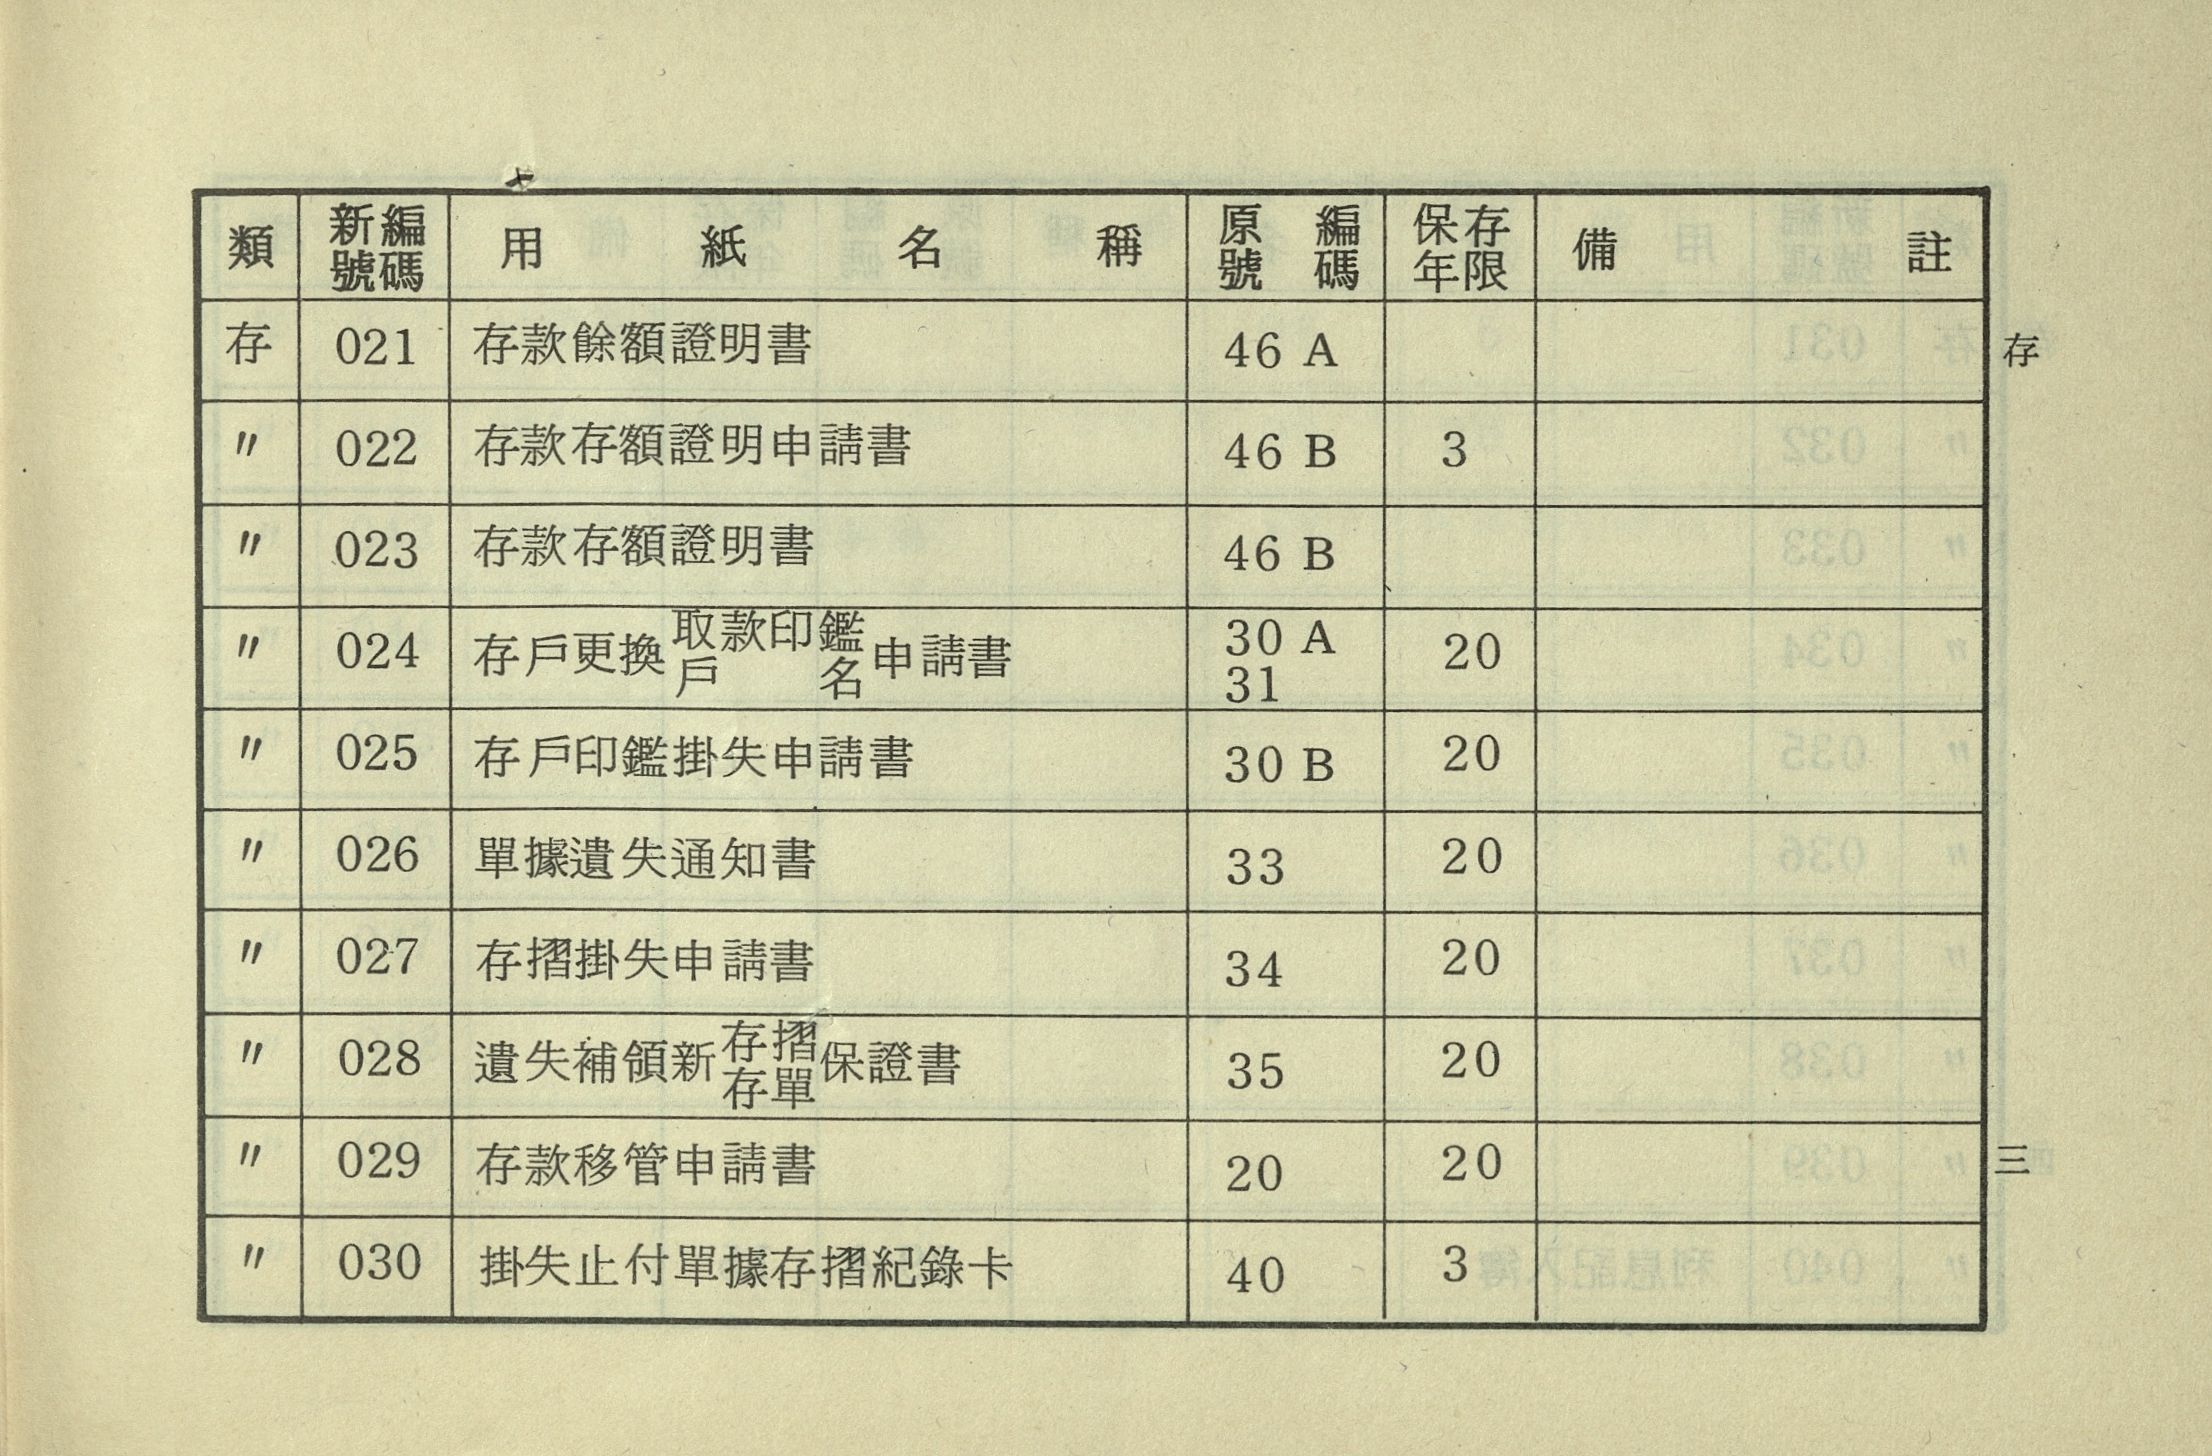 類 新編號碼 用紙名稱 原編號碼 保存年限 備註
存 021 存款餘額證明書 46 A
〃 022 存款存額證明申請書 46 B 3
〃 023 存款存額證明書 46 B
〃 024 存戶更換取款印鑑戶名申請書 30 A 31 20
〃 025 存戶印鑑掛失申請書 30 B 20
〃 026 單據遺失通知書 33 20
〃 027 存摺掛失申請書 34 20
〃 028 遺失補領新存摺存單保證書 35 20
〃 029 存款移管申請書 20 20
〃 030 掛失止付單據存摺紀錄卡 40 3
存
三